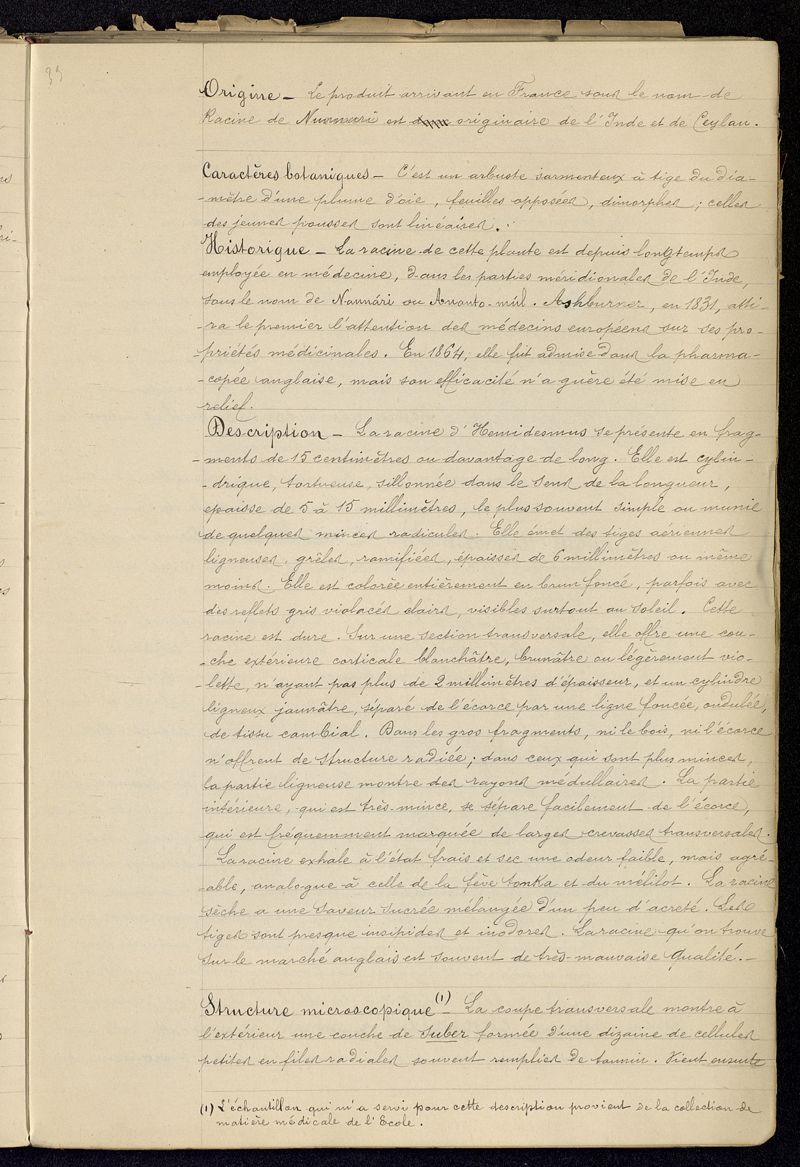 33
Origine – Le produit arrivant en France sous le nom de
Racine de Nunnari est originaire de l'Inde et de Ceylan.
Caractères botaniques – C'est un arbuste sarmenteux à tige du dia-
-mètre d'une plume d'oie, feuilles opposées, dimorphes ; celles
des jeunes pousses sont linéaires.
Historique – La racine de cette plante est depuis longtemps
employée en médecine, dans les parties méridionales de l'Inde,
sous le nom de Nannâri ou Ananto-mûl. Ashburner, en 1831, atti-
ra le premier l'attention des médecins européens sur ses pro-
-priétés médicinales. En 1864, elle fut admise dans la pharma-
-copée anglaise, mais son efficacité n'a guère été mise en
relief.
Description – La racine d'Hemidesmus se présente en frag-
-ments de 15 centimètres ou davantage de long. Elle est cylin-
-drique, tortueuse, sillonnée dans le sens de la longueur,
epaisse de 5 à 15 millimètres, le plus souvent simple ou munie
de quelques minces radicules. Elle émet des tiges aériennes
ligneuses, grêles, ramifiées, épaisses de 6 millimètres ou même
moins. Elle est colorée entièrement en brun foncé, parfois avec
des reflets gris violacés clairs, visibles surtout au soleil. Cette
racine est dure. Sur une section transversale, elle offre une cou-
-che extérieure corticale blanchâtre, brunâtre ou légèrement vio-
-lette, n'ayant pas plus de 2 millimètres d'épaisseur, et un cylindre
ligneux jaunâtre, séparé de l'écorce par une ligne foncée, ondulée,
de tissu cambial. Dans les gros fragments, ni le bois, ni l'écorce
n'offrent de structure radiée ; dans ceux qui sont plus minces,
la partie ligneuse montre des rayons médullaires. La partie
intérieure, qui est très-mince, se sépare facilement de l'écorce,
qui est fréquemment marquée de larges crevasses transversales.
La racine exhale à l'état frais et sec une odeur faible, mais agré-
-able, analogue à celle de la fève tonka et du mélilot. La racine
sèche a une saveur sucrée mélangée d'un peu d'acreté. Les
tiges sont presque insipides et inodores. La racine qu'on trouve
sur le marché anglais est souvent de très-mauvaise qualité. –
Structure microscopique (1) – La coupe transversale montre à
l'extérieur une couche de suber formée d'une dizaine de cellules
petites en files radiales souvent remplies de tannin. Vient ensuite
(1) L'échantillon qui m'a servi pour cette description provient de la collection de
matière médicale de l'Ecole.